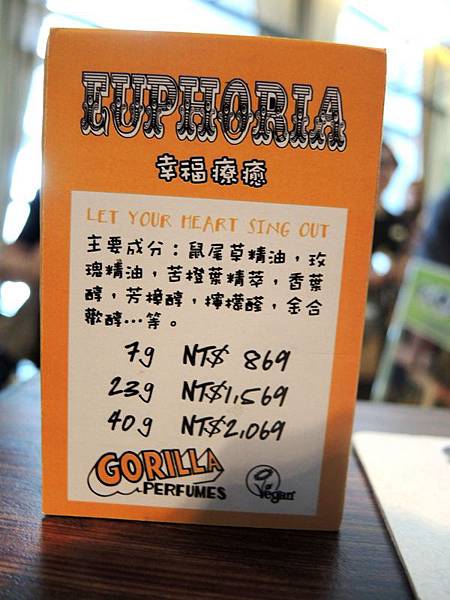 EUPHORIA
幸福療癒
LET YOUR HEART SING OUT
主要成分：鼠尾草精油，玫
瑰精油，苦橙葉精萃，香葉
醇，芳樟醇，檸檬醛，金合
歡醇…等。
7g NT$ 869
23g NT$1,569
40g NT$2,069
GORILLA
PERFUMES
Vegan